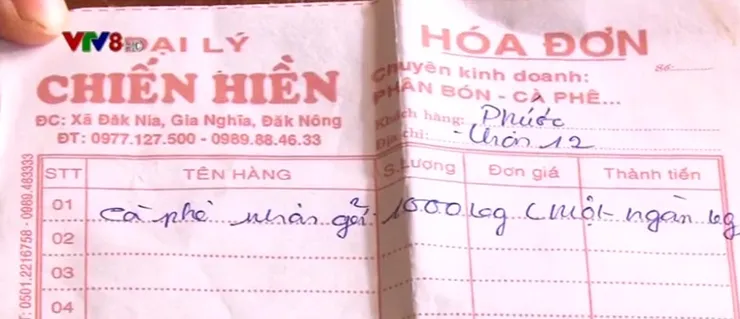 VTV8 HD
ĐẠI LÝ
CHIẾN HIỀN
ĐC: Xã Đăk Nia, Gia Nghĩa, Đăk Nông
ĐT: 0977.127.500 - 0989.88.46.33
HÓA ĐƠN
Số:
Chuyên kinh doanh:
PHÂN BÓN - CÀ PHÊ...
Khách hàng: Phước
Địa chỉ: - thôn 12
STT TÊN HÀNG S.Lượng Đơn giá Thành tiền
01 cà phê nhân gởi 1000kg (một ngàn kg
02
03
04
ĐT: 0501.2216758 - 0989.483333